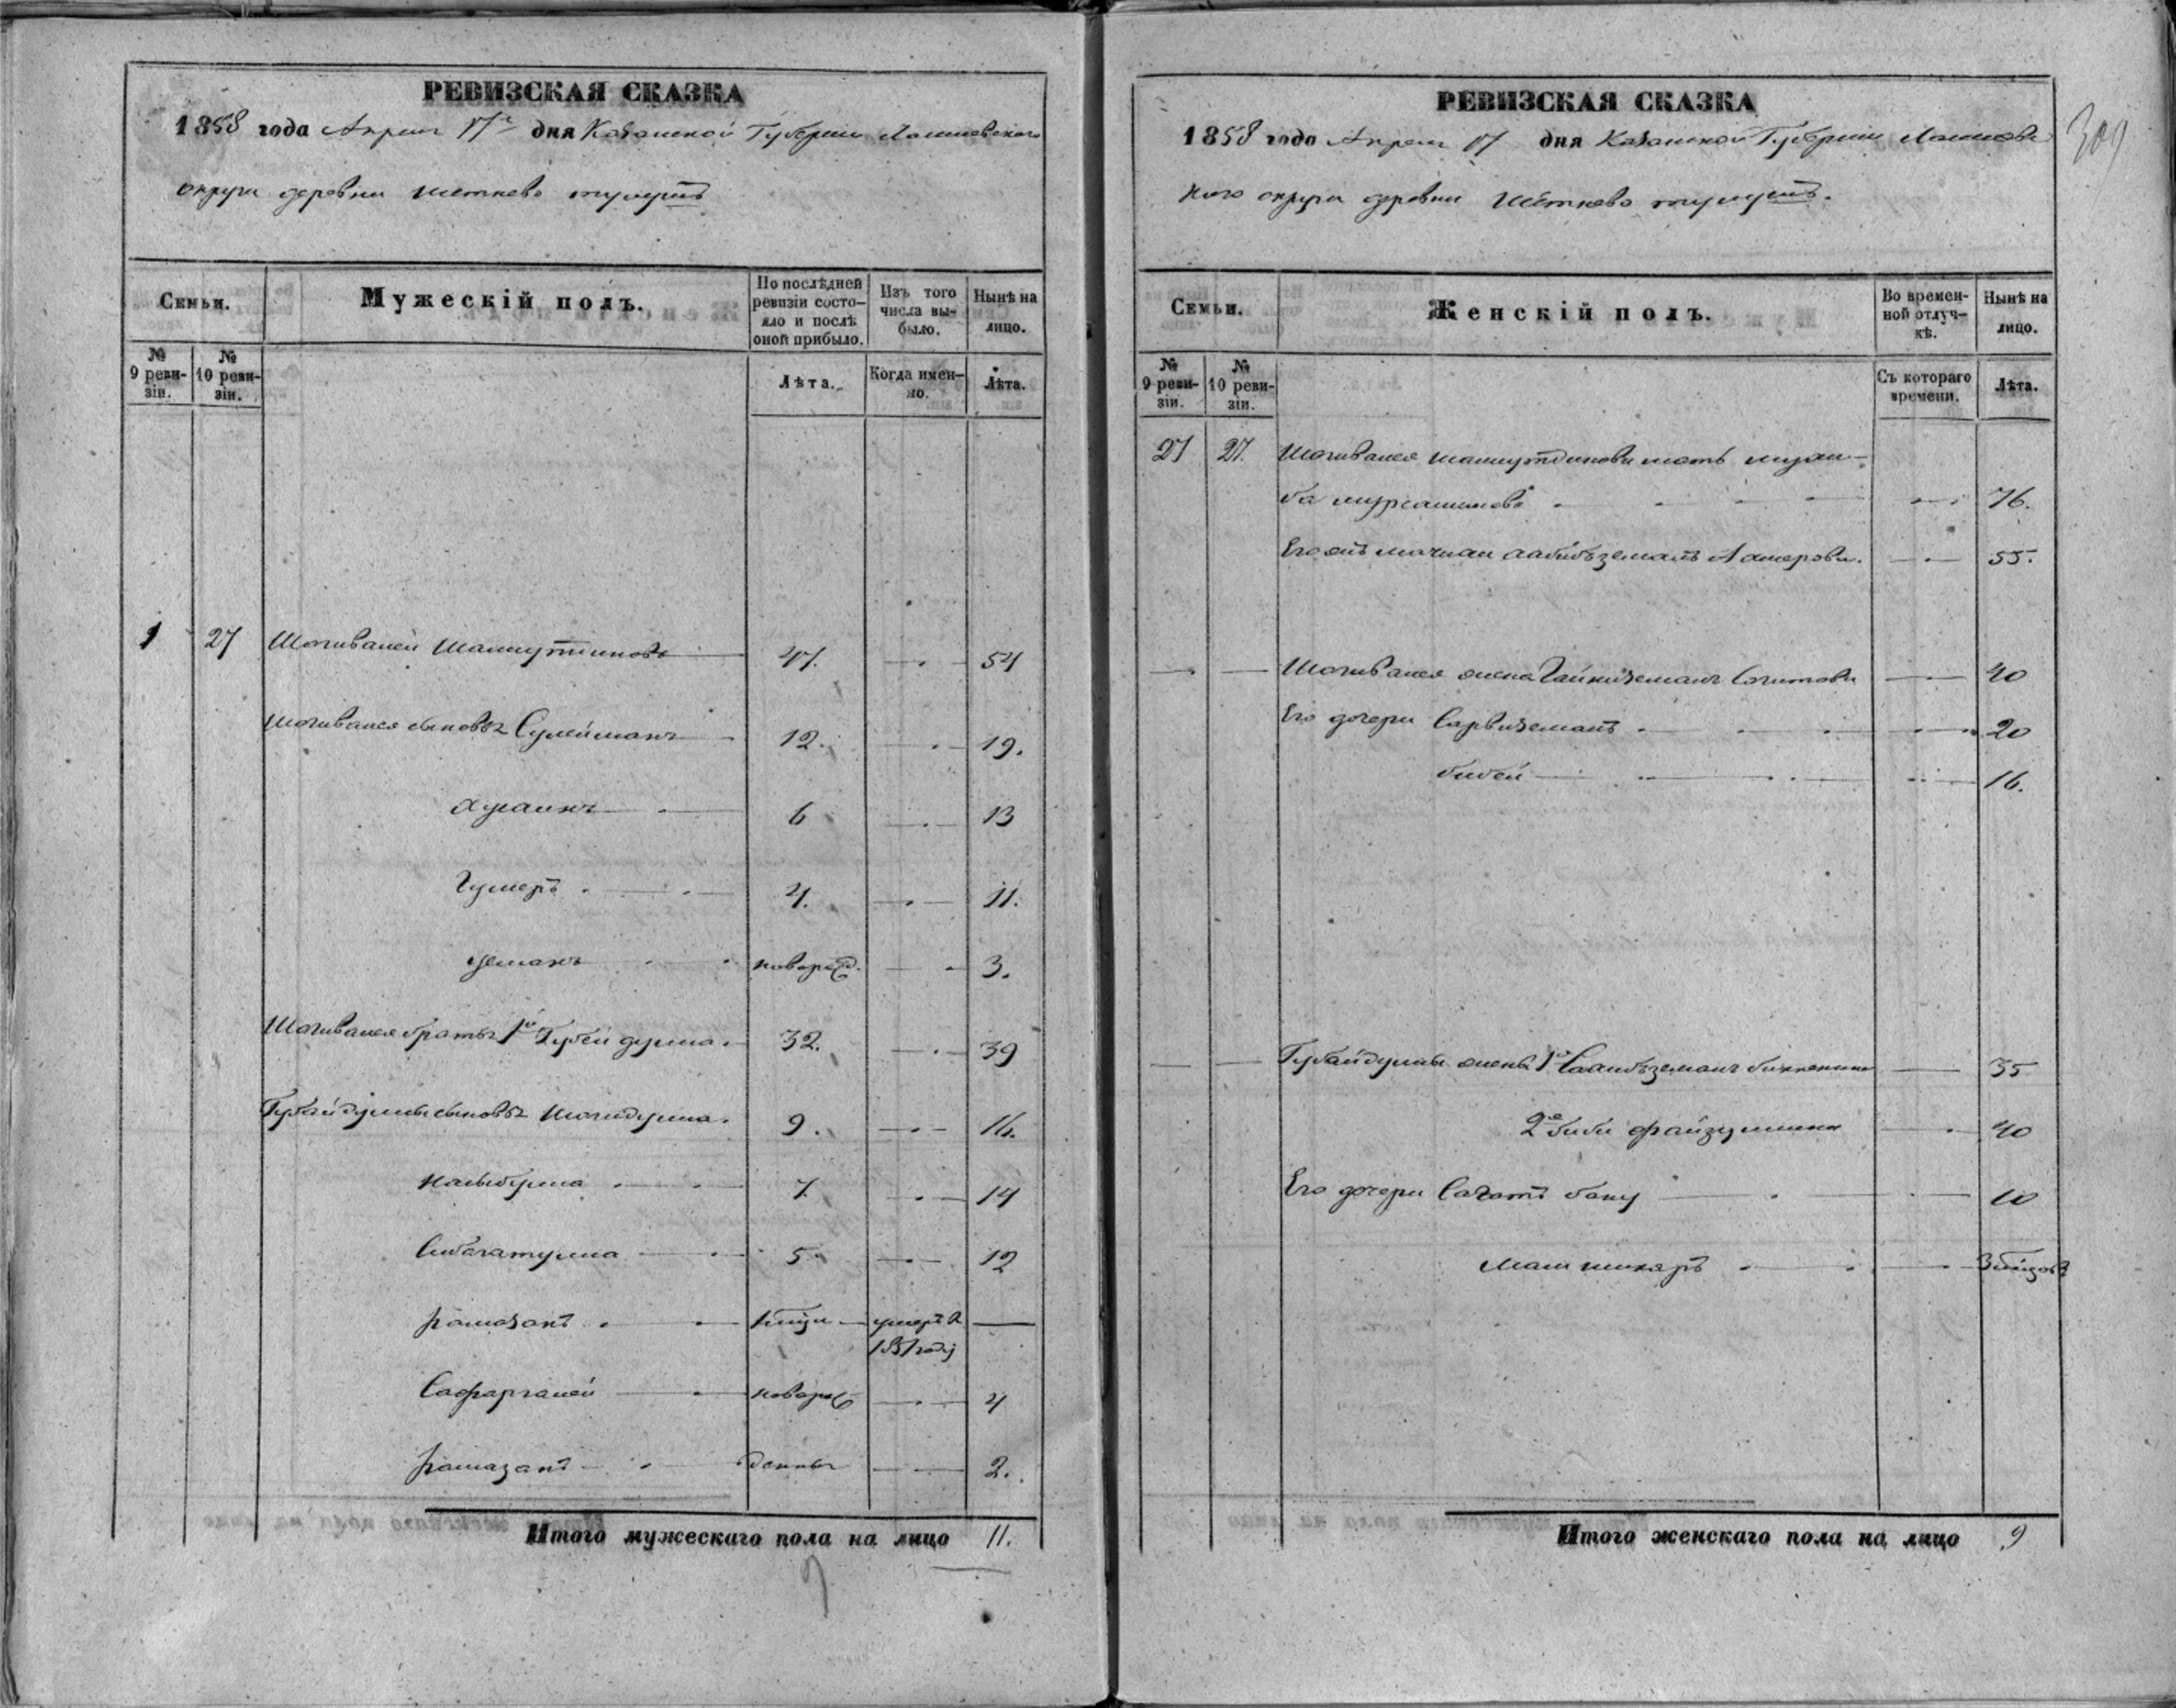 РЕВИЗСКАЯ СКАЗКА
1858 года Апреля 17го дня Казанской Губернии Лаишевского
округи деревни Шетнево тулуш
Семьи.
Мужескій полъ.
По послѣдней ревизіи состояло и послѣ оной прибыло.
Изъ того числа выбыло.
Нынѣ на лицо.
№ 9 ревизіи.
№ 10 ревизіи.
Лѣта.
Когда именно.
Лѣта.
27 Шагивалей 47. 54
Шагивалея сыновья Сулейманъ 12. 19.
Хусаинъ 6 13
Гумеръ 4. 11.
Усманъ новорожд. 3.
Шагивалея братья 1й Губейдулла 32. 39
Губайдуллы сыновья Шагидулла 9. 16.
7 14
Сибагатулла 5 12
Рамазанъ умеръ въ
1851 году
Сафаргалей новорож 4
Рамазанъ денны 2.
Итого мужескаго пола на лицо 11.
9
РЕВИЗСКАЯ СКАЗКА
1858 года Апреля 17 дня Казанской Губернии Лаишевс
кого округи деревни Шетнево тулуш.
309
Семьи.
Женскій полъ.
Во временной отлучкѣ.
Нынѣ на лицо.
№ 9 ревизіи.
№ 10 ревизіи.
Съ котораго времени.
Лѣта.
27 27. Шагивалея мать
76.
Его мачиха 55.
Шагивалея жена Сагитова 40
Его дочери Сарвиземалъ 20
бибей 16.
Губайдуллы жены 1я 35
2я Биби Файзуллина 40
Его дочери Сагатъ бану 10
3 месецов
Итого женскаго пола на лицо 9